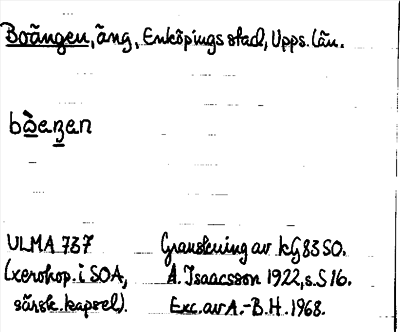 Boängen, äng, Enköpings stad, Upps. län.
bò̱eŋ̱en
ULMA 737 Granskning av kG 83 SO.
(xerokop. i SOA, A. Isaacsson 1922, s. S 16.
särsk. kapsel). Exc. av A.-B. H. 1968.